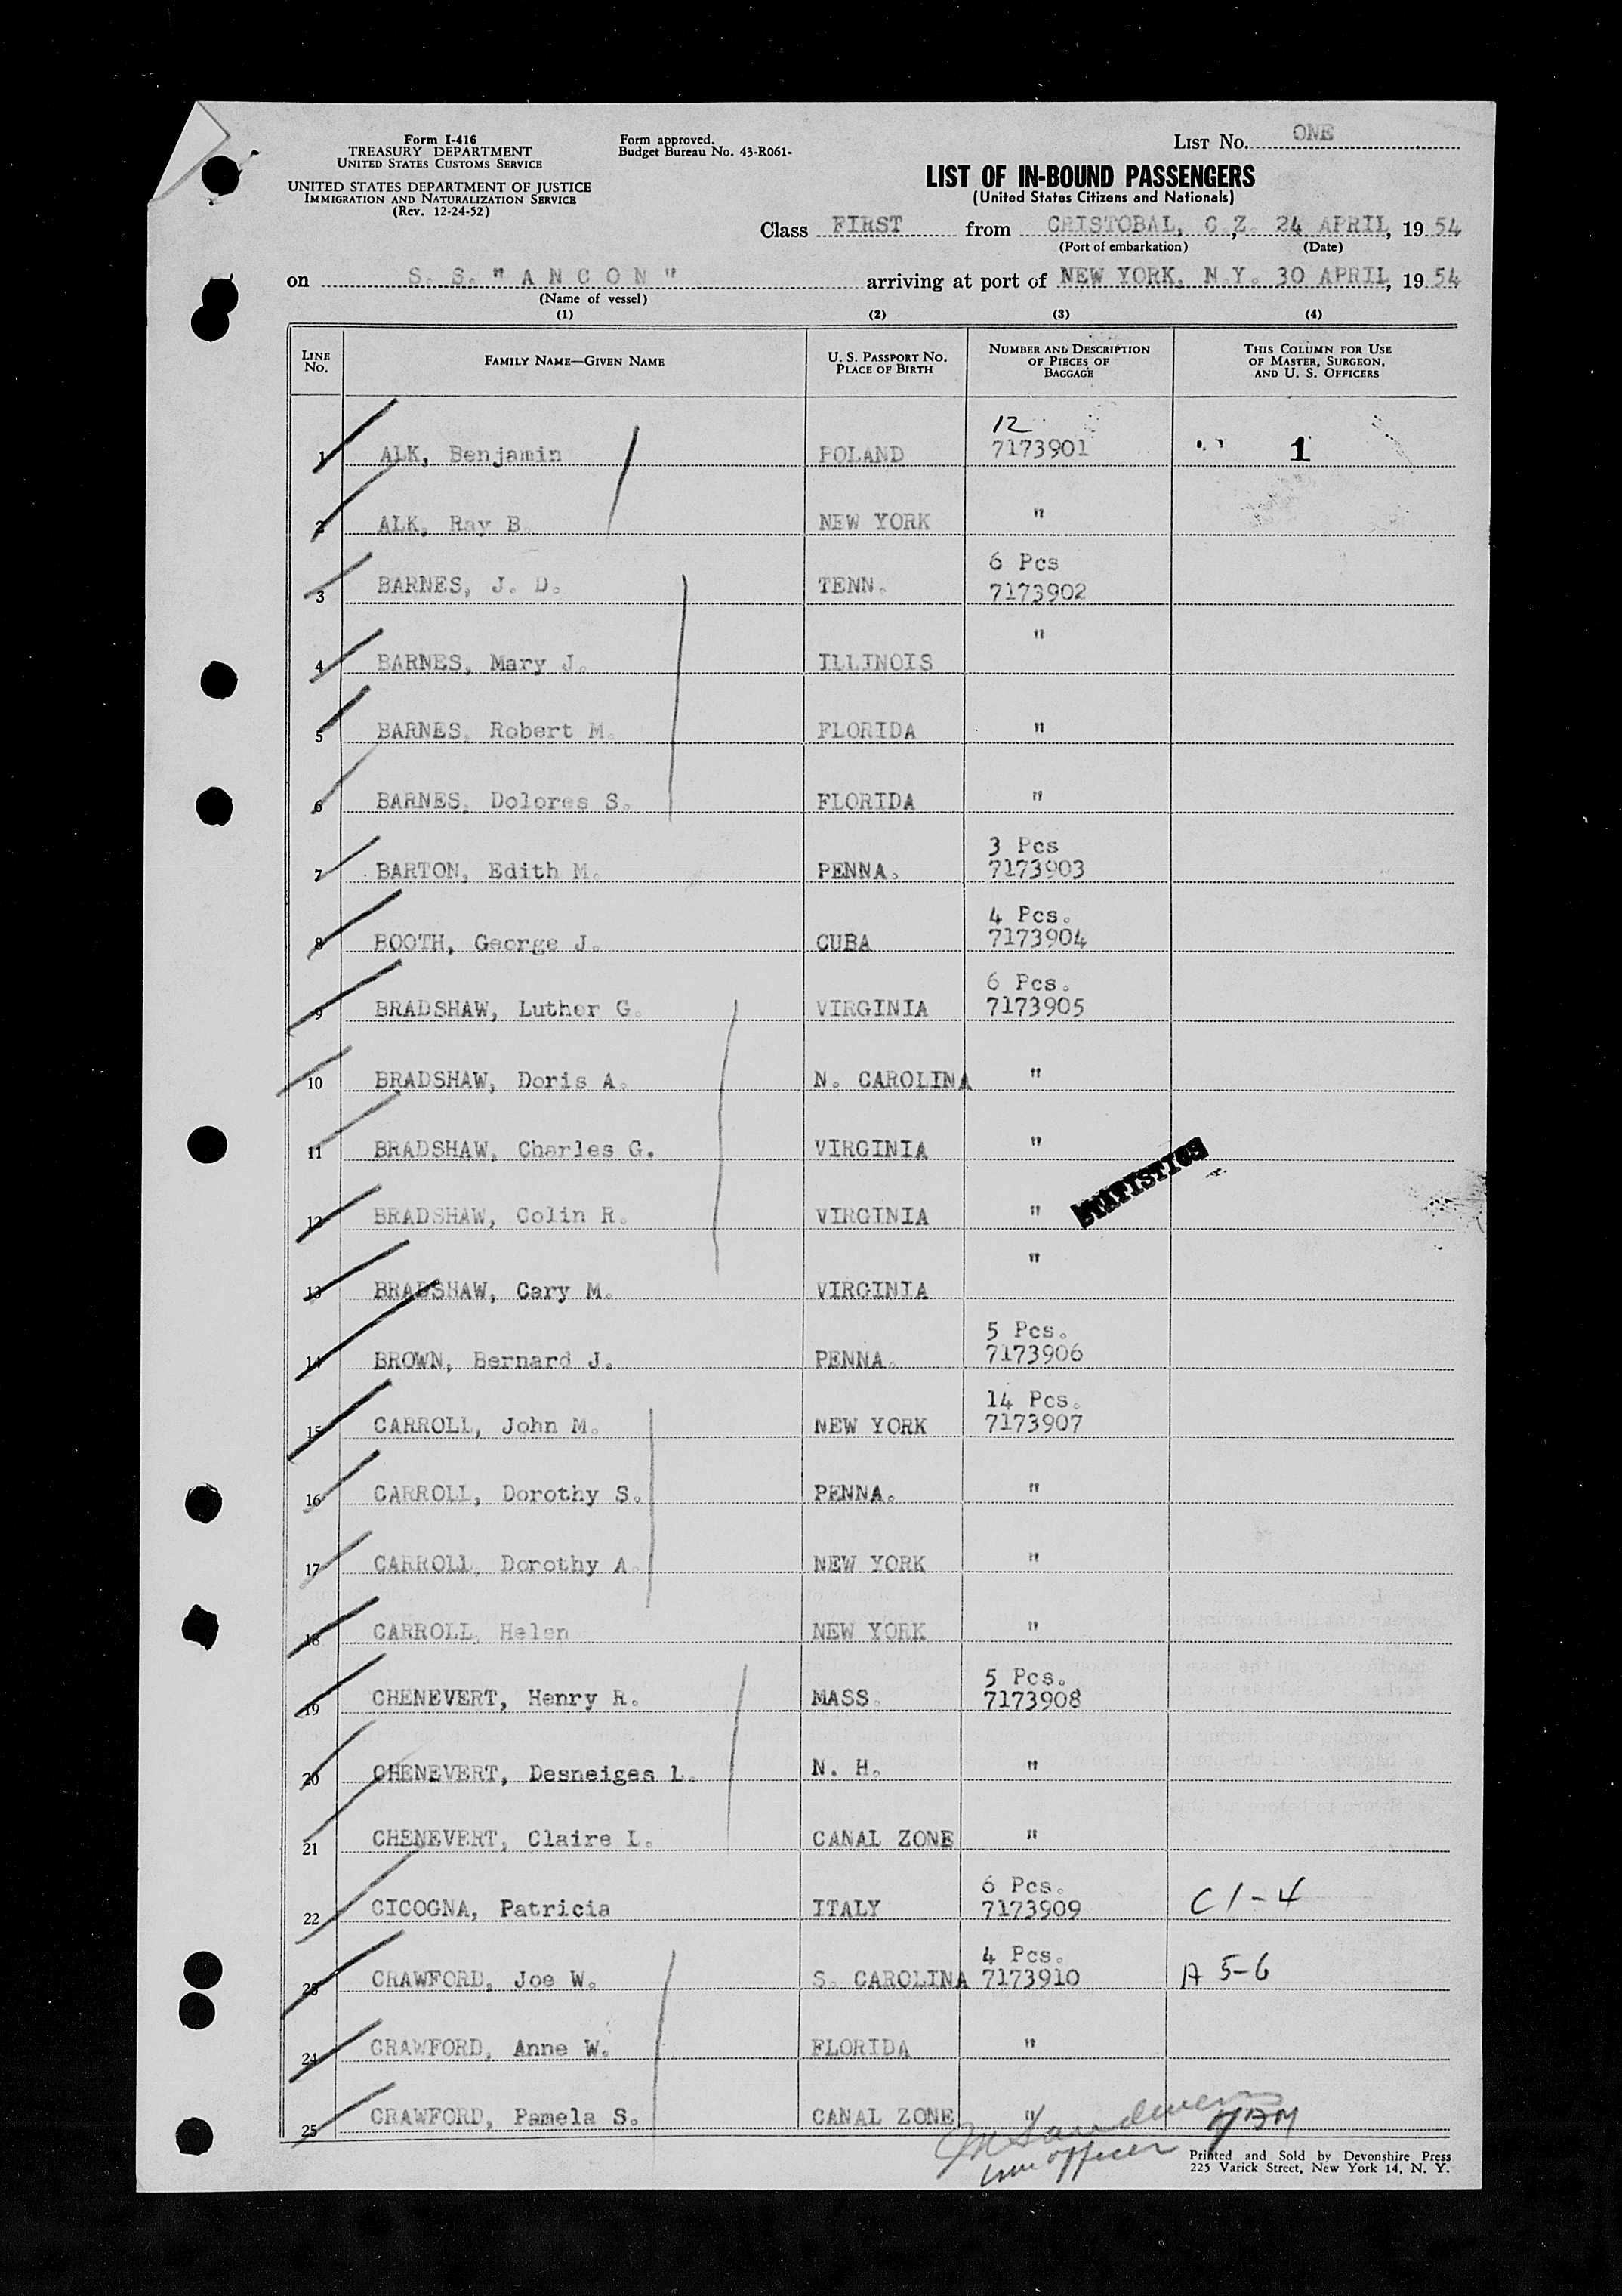 Form I-416
TREASURY DEPARTMENT
UNITED STATES CUSTOMS SERVICE
UNITED STATES DEPARTMENT OF JUSTICE
IMMIGRATION AND NATURALIZATION SERVICE
(Rev. 12-24-52)
Form approved.
Budget Bureau No. 43-R061-
LIST No. ONE
LIST OF IN-BOUND PASSENGERS
(United States Citizens and Nationals)
Class FIRST from CRISTOBAL, C.Z. 24 APRIL, 1954
(Port of embarkation) (Date)
on S. S. "A N C O N" arriving at port of NEW YORK, N.Y. 30 APRIL, 1954
(Name of vessel)
(1) (2) (3) (4)
LINE No. FAMILY NAME—GIVEN NAME U. S. PASSPORT No. PLACE OF BIRTH NUMBER AND DESCRIPTION OF PIECES OF BAGGAGE THIS COLUMN FOR USE OF MASTER, SURGEON, AND U. S. OFFICERS
12
1 ALK, Benjamin POLAND 7173901 1
2 ALK, Ray B. NEW YORK "
6 Pcs
3 BARNES, J. D. TENN. 7173902
4 BARNES, Mary J. ILLINOIS "
5 BARNES, Robert M. FLORIDA "
6 BARNES, Dolores S. FLORIDA "
3 Pcs
7 BARTON, Edith M. PENNA. 7173903
4 Pcs.
8 BOOTH, George J. CUBA 7173904
6 Pcs.
9 BRADSHAW, Luther G. VIRGINIA 7173905
10 BRADSHAW, Doris A. N. CAROLINA "
11 BRADSHAW, Charles G. VIRGINIA "
STATISTICS
12 BRADSHAW, Colin R. VIRGINIA "
13 BRADSHAW, Cary M. VIRGINIA "
5 Pcs.
14 BROWN, Bernard J. PENNA. 7173906
14 Pcs.
15 CARROLL, John M. NEW YORK 7173907
16 CARROLL, Dorothy S. PENNA. "
17 CARROLL, Dorothy A. NEW YORK "
18 CARROLL, Helen NEW YORK "
5 Pcs.
19 CHENEVERT, Henry R. MASS. 7173908
20 CHENEVERT, Desneiges L. N. H. "
21 CHENEVERT, Claire L. CANAL ZONE "
6 Pcs.
22 CICOGNA, Patricia ITALY 7173909 C 1-4
4 Pcs.
23 CRAWFORD, Joe W. S. CAROLINA 7173910 A 5-6
24 CRAWFORD, Anne W. FLORIDA "
25 CRAWFORD, Pamela S. CANAL ZONE "
officer
Printed and Sold by Devonshire Press
225 Varick Street, New York 14, N. Y.